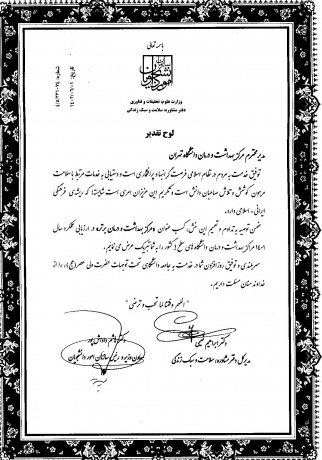 باسمه تعالی
تاریخ: ۱۴۰۲/۰۶/۱۱
شماره: ۴۵/۲۳۱۰۷۴
سازمان امور دانشجویان
وزارت علوم، تحقیقات و فناوری
دفتر مشاوره، سلامت و سبک زندگی
لوح تقدیر
مدیر محترم مرکز بهداشت و درمان دانشگاه تهران
توفیق خدمت به مردم در نظام اسلامی فرصت گرانبها و پرافتخاری است و دستیابی به خدمات مرتبط با سلامت
مرهون کوشش و تلاش صاحبان دانش است و تکریم این عزیزان امری است شایسته که ریشه‌ی فرهنگی
ایرانی ـ اسلامی دارد.
ضمن توصیه به تداوم و تعمیم این منش، کسب عنوان «مرکز بهداشت و درمان برتر» در ارزیابی عملکرد سال
۱۴۰۱ مراکز بهداشت و درمان دانشگاه‌های سطح کشور را به شما تبریک عرض می نمایم.
سربلندی و توفیق روزافزون شما در خدمت به جامعه دانشگاهی تحت توجهات حضرت ولی عصر(عج) را از
خداوند منان مسئلت داریم.
"اللهم وفقنا لما تحب و ترضی"
دکتر ابراهیم
مدیرکل دفتر مشاوره، سلامت و سبک زندگی
دکتر هاشم داداش پور
معاون وزیر و رئیس سازمان امور دانشجویان